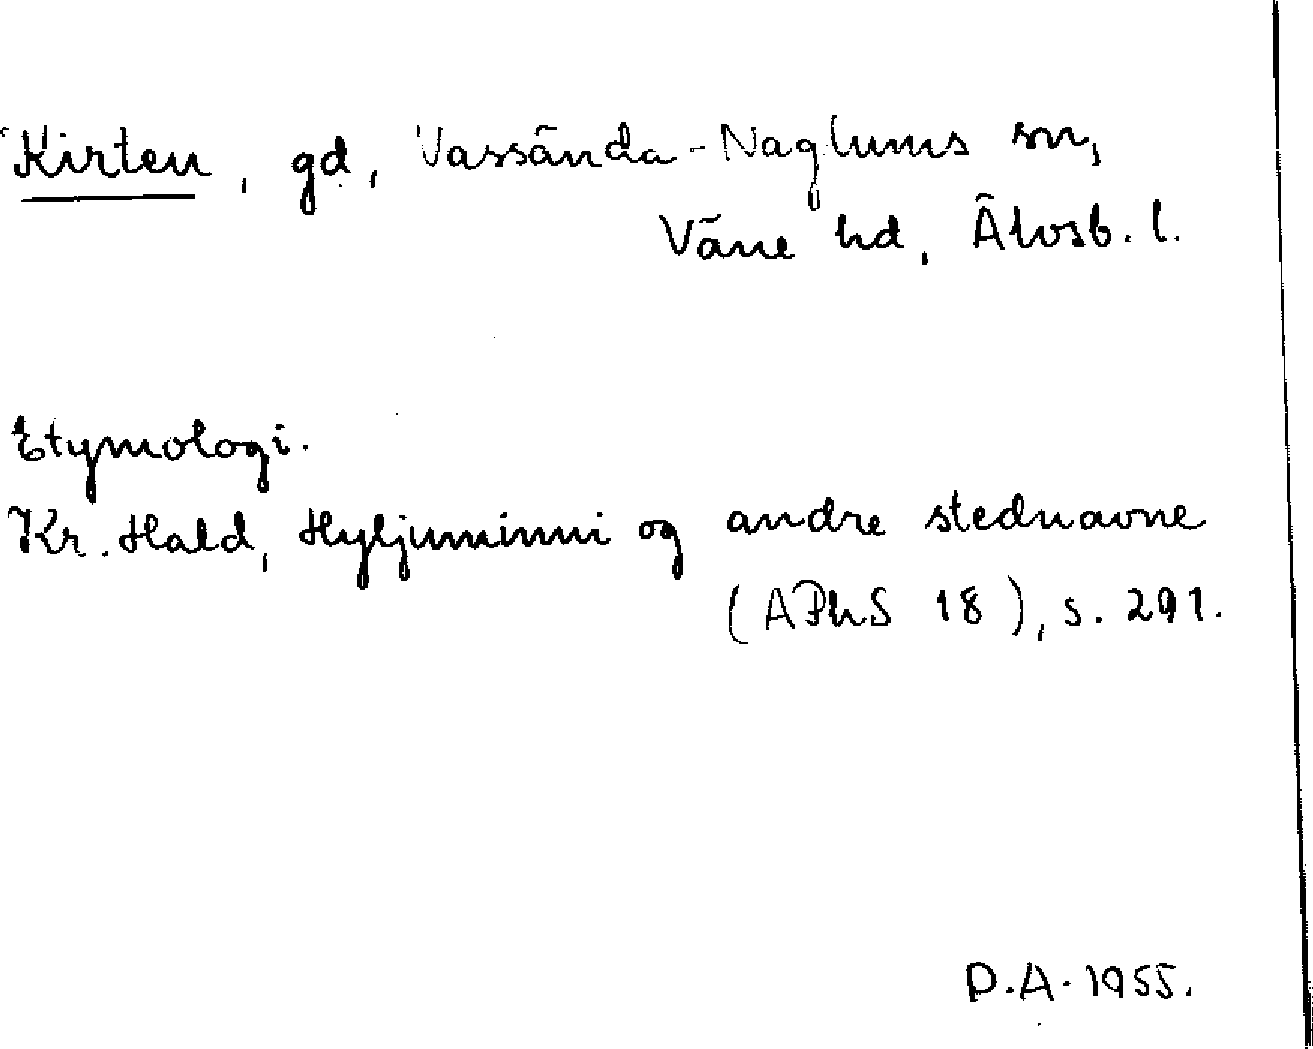 Kirten, gd, Vassända-Naglums sn,
Väne hd, Älvsb. l.
Etymologi.
Kr. Hald, Hyljuminni og andre stednavne
(APhS 18), s. 291.
D.A. 1955.